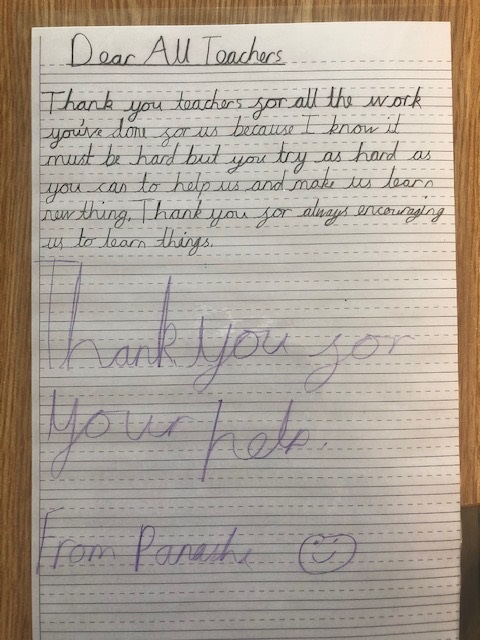 Dear All Teachers
Thank you teachers for all the work
you've done for us because I know it
must be hard but you try as hard as
you can to help us and make us learn
new thing. Thank you for always encouraging
us to learn things.
Thank you for
your help.
From Panashe